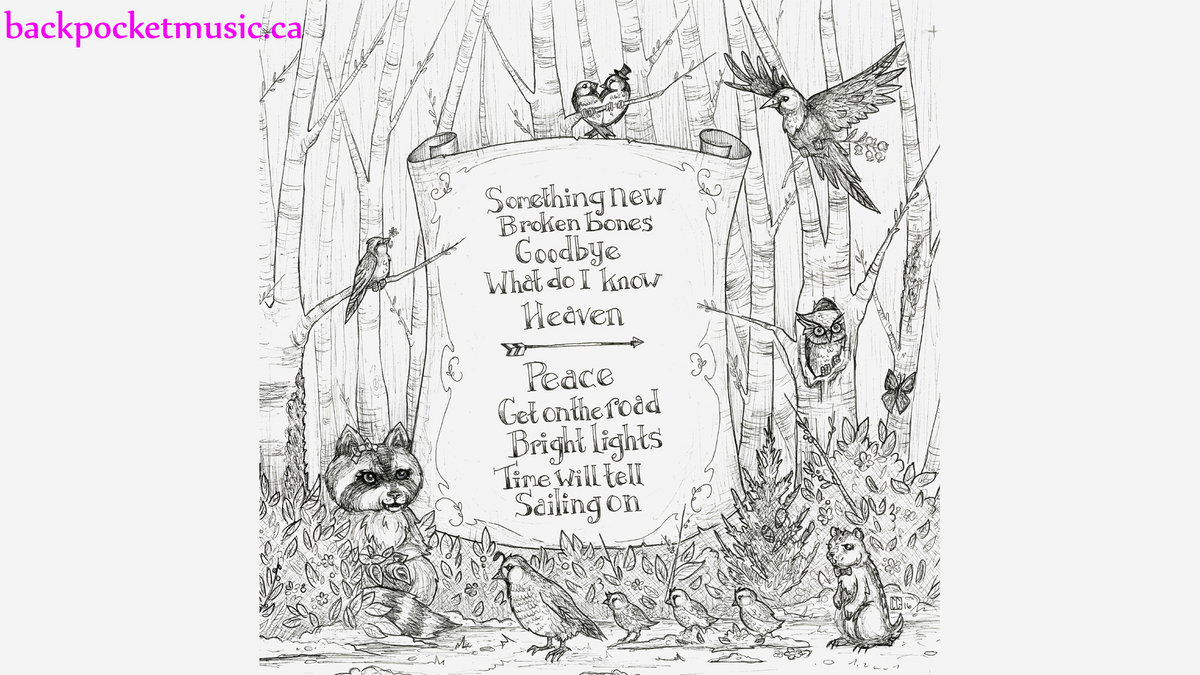 backpocketmusic.ca
Something new
Broken bones
Goodbye
What do I know
Heaven
Peace
Get on the road
Bright lights
Time will tell
Sailing on